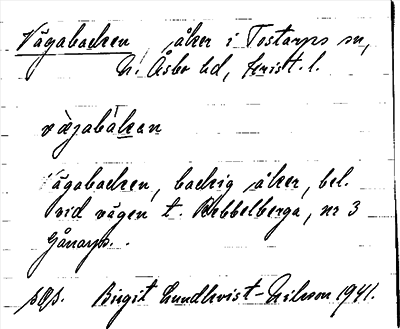 Vägabacken åker i Tostarps sn,
N. Åsbo hd, Krist. l.
vægabàkan
Vägabacken, backig åker, bel.
vid vägen t. Bebbelberga, nr 3
Gånarp.
sqs. Birgit Lundkvist-Nilsson 1941.